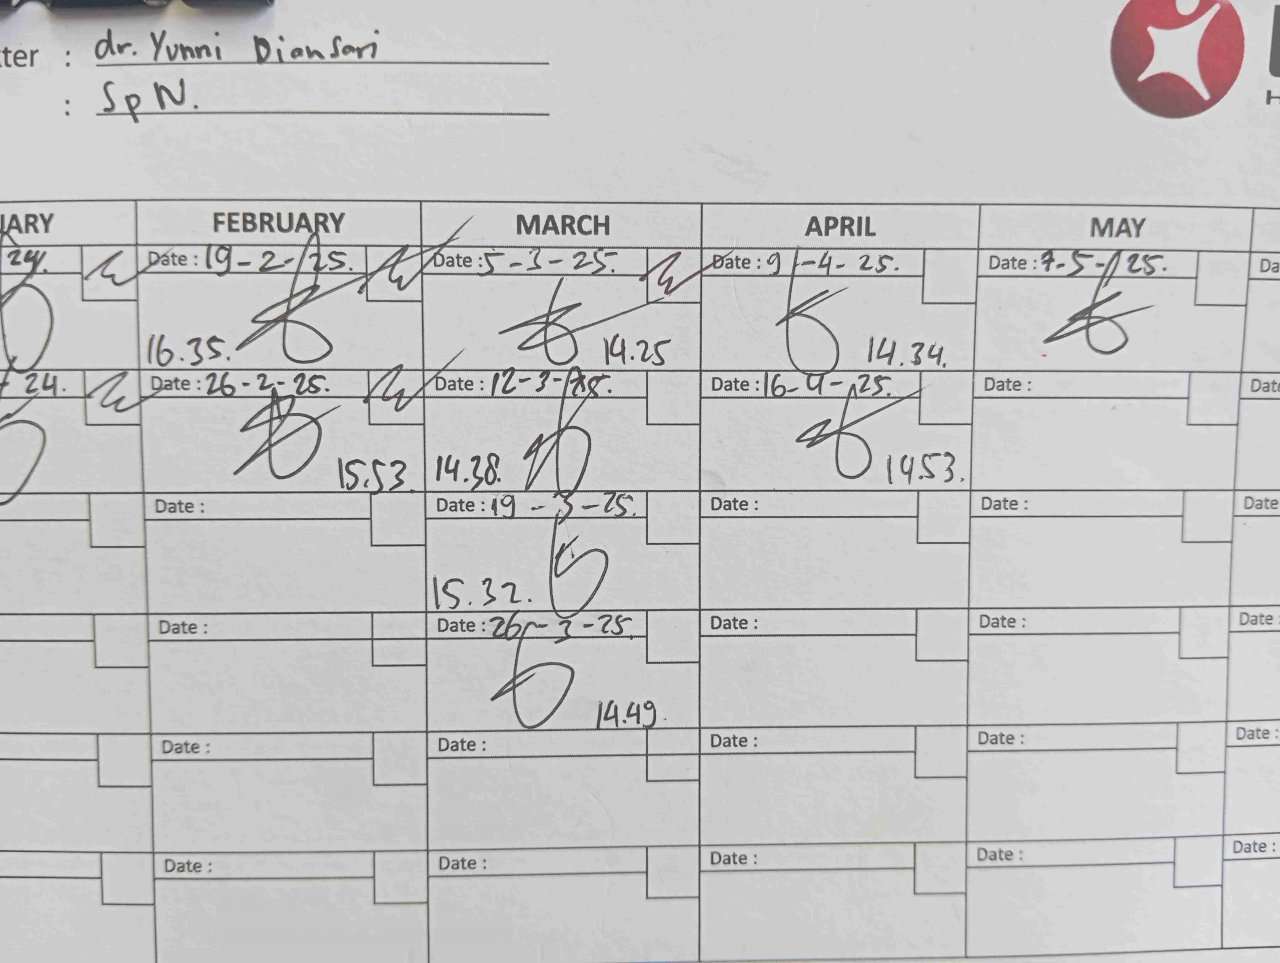 ter : dr. Yunni Diansari
: Sp N.
H
UARY FEBRUARY MARCH APRIL MAY
24. Date : 19-2-25. Date : 5-3-25. Date : 9-4-25. Date : 7-5-25. Da
16.35. 14.25 14.34.
24. Date : 26-2-25. Date : 12-3-25. Date : 16-4-25. Date : Date
15.53. 14.38. 14.53.
Date : Date : 19-3-25. Date : Date : Date
15.32.
Date : Date : 26-3-25. Date : Date : Date :
14.49.
Date : Date : Date : Date : Date :
Date : Date : Date : Date : Date :